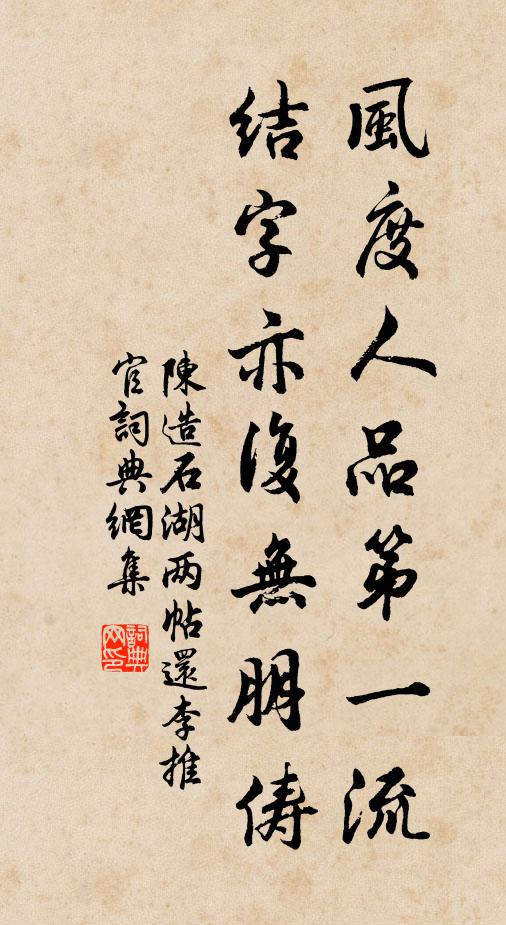 風度人品第一流
結字亦復無朋儔
陳造石湖两帖還李推
官詞典網集
詞典
网印